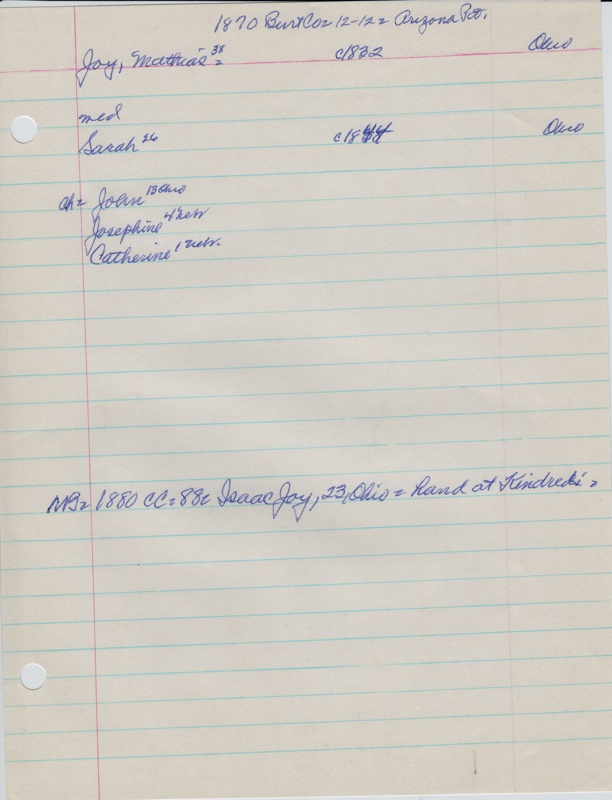 1870 Burt Co = 12-12 = Arizona Pct.
Joy, Mathias 38 = c1832 Ohio
med
Sarah 26 c1844 Ohio
ch = John 13 Ohio
Josephine 4 Nebr
Catherine 1 Nebr.
NB = 1880 CC = 88 = Isaac Joy, 23, Ohio = hand at Kindred's =